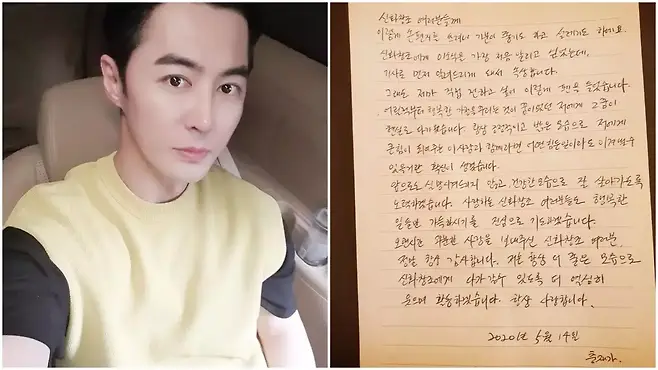 신화창조 여러분들께
이렇게 손편지를 쓰려니 기분이 좋기도 하고 설레기도 하네요.
신화창조에게 이 소식을 가장 처음 알리고 싶었는데,
기사로 먼저 알려드리게 돼서 속상합니다.
그래도 제가 직접 전하고 싶어 이렇게 펜을 들었습니다.
어릴적부터 행복한 가정을 꾸리는 것이 꿈이었던 저에게 그 꿈이
현실로 다가왔습니다. 항상 긍정적이고 밝은 모습으로 저에게
큰 힘이 되어주는 이 사람과 함께라면 어떤 힘든일이라도 이겨낼수
있을거란 확신이 생겼습니다.
앞으로도 실망시켜드리지 않고 건강한 모습으로 잘 살아가도록
노력하겠습니다. 사랑하는 신화창조 여러분들도 행복한
일들만 가득하시기를 진심으로 기도하겠습니다.
오랜시간 귀중한 시간을 보내주신 신화창조 여러분
정말 항상 감사합니다. 저도 항상 더 좋은 모습으로
신화창조에게 다가갈수 있도록 더 열심히
웃으며 활동하겠습니다. 항상 사랑합니다.
2020년 5월 14일
충재가.